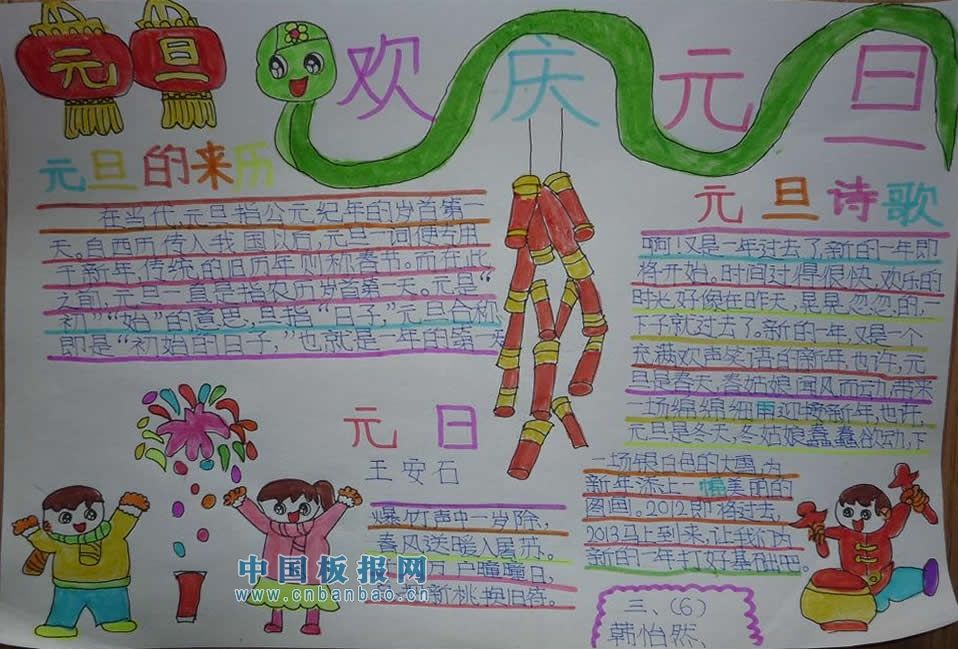 元旦
欢庆元旦
元旦的来历
在当代,元旦指公元纪年的岁首第一
天。自西历传入我国以后,元旦一词便专用
于新年,传统的旧历年则称春节。而在此
之前,元旦一直是指农历岁首第一天。元是“
初”“始”的意思,旦指“日子,”元旦合称
即是“初始的日子,”也就是一年的第一天
元日
王安石
爆竹声中一岁除,
春风送暖入屠苏。
万户曈曈日,
新桃换旧符。
元旦诗歌
啊!又是一年过去了,新的一年即
将开始。时间过得很快,欢乐的
时光,好像在昨天,晃晃忽忽,的一
下子就过去了。新的一年,又是一个
充满欢声笑语的新年,也许,元
旦是春天,春姑娘闻风而动,带来
一场绵绵细雨迎接新年,也许,
元旦是冬天,冬姑娘蠢蠢欲动,下
一场银白色的大雪,为
新年添上一幅美丽的
图画。2012即将过去,
2013马上到来,让我们为
新的一年打好基础吧。
三、(6)
韩怡然、
中国板报网
www.cnbanbao.cn